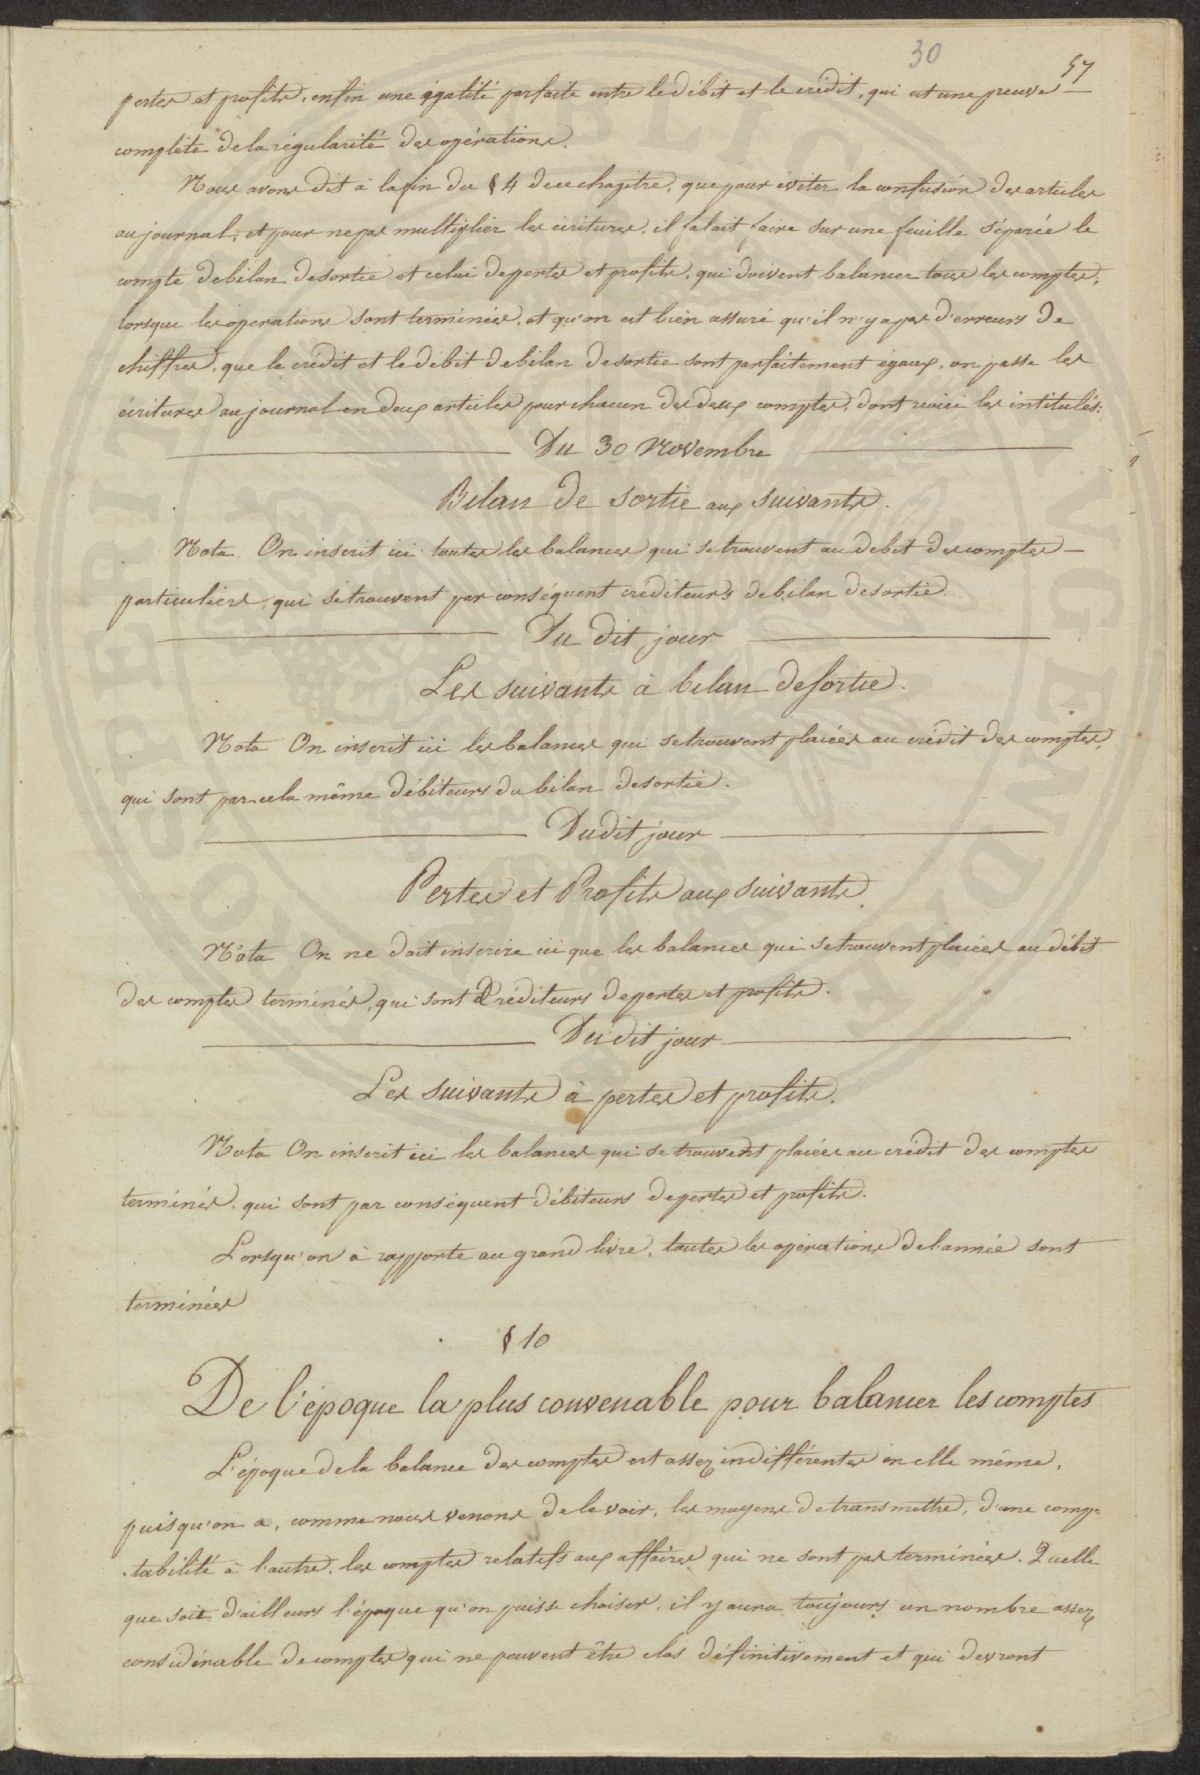 30
57
pertes et profits, enfin une égalité parfaite entre le débit et le crédit, qui est une preuve
complète de la régularité des opérations.
Nous avons dit à la fin du § 4 de ce chapitre, que pour éviter la confusion des articles
au journal, et pour ne pas multiplier les écritures, il falait faire sur une feuille séparée le
compte de bilan de sortie et celui de pertes et profits, qui doivent balancer tous les comptes,
lorsque les operations sont terminées, et qu'on est bien assuré qu'il n'y a pas d'erreurs de
chiffres, que le crédit et le débit de bilan de sortie sont parfaitement égaux, on passe les
écritures au journal en deux articles pour chacun des deux comptes, dont voici les intitulés:
Du 30 Novembre
Bilan de sortie aux suivants.
Nota On inscrit ici toutes les balances qui se trouvent au debit des comptes —
particuliers, qui se trouvent par conséquent créditeurs de bilan de sortie.
Du dit jour
Les suivants à bilan de sortie.
Nota On inscrit ici les balances qui se trouvent placées au crédit des comptes,
qui sont par cela même débiteurs du bilan de sortie.
Du dit jour
Pertes et Profits aux suivants.
Nota On ne doit inscrire ici que les balances qui se trouvent placées au débit
des comptes terminés, qui sont Créditeurs de pertes et profits.
Du dit jour
Les suivants à pertes et profits.
Nota On inscrit ici les balances qui se trouvent placées au crédit des comptes
terminés, qui sont par conséquent débiteurs de pertes et profits.
Lorsqu'on à rapporte au grand livre, toutes les opérations de l'année sont
terminées
§ 10
De l'époque la plus convenable pour balancer les comptes
L'époque de la balance des comptes est assez indifférente en elle même,
puisqu'on a, comme nous venons de le voir, les moyens de transmettre, d'une comp-
-tabilité à l'autre, les comptes relatifs aux affaires qui ne sont pas terminées. Quelle
que soit d'ailleurs l'époque qu'on puisse choisir, il y aura toujours un nombre assez
considérable de comptes qui ne peuvent être clos définitivement et qui devront